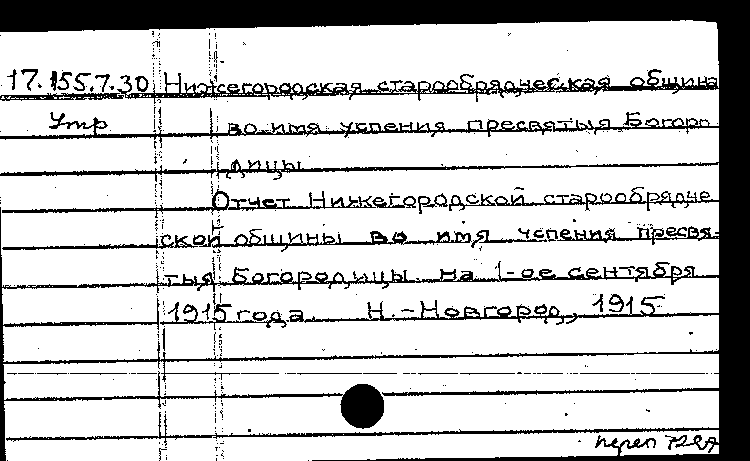 17.155.7.30 Нижегородская старообрядческая община
Утр во имя успения пресвятыя Богоро
дицы
Отчет Нижегородской старообрядче
ской общины во имя успения пресвя-
тыя Богородицы на 1-ое сентября
1915 года. Н.-Новгород, 1915